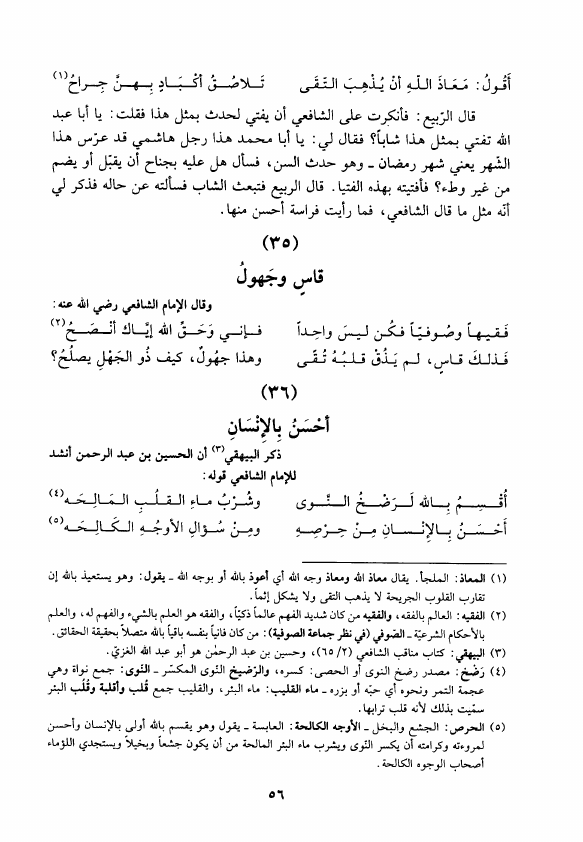 أَقُولُ: مَعَاذَ اللّهِ أنْ يُذْهِبَ التّقَى تَلاصُقُ أكْبَادٍ بِهِنَّ جِراحُ(١)
قال الرّبيع: فأنكرت على الشافعي أن يفتي لحدث بمثل هذا فقلت: يا أبا عبد
الله تفتي بمثل هذا شاباً؟ فقال لي: يا أبا محمد هذا رجل هاشمي قد عرّس هذا
الشهر يعني شهر رمضان ــ وهو حدث السن، فسأل هل عليه بجناح أن يقبّل أو يضم
من غير وطء؟ فأفتيته بهذه الفتيا. قال الربيع فتبعث الشاب فسألته عن حاله فذكر لي
أنّه مثل ما قال الشافعي، فما رأيت فراسة أحسن منها.
(٣٥)
قاسٍ وجَهولُ
وقال الإمام الشافعي رضي الله عنه:
فَقيهاً وصُوفيّاً فكُن ليسَ واحِداً فـإنـي وَحَـقِّ الله إيّاك أنْـصَـحُ(٢)
فذلكَ قـاسٍ، لـم يَـذُقْ قـلبُهُ تُـقَـى وهذا جهُولٌ، كيف ذُو الجَهْلِ يصلُحُ؟
(٣٦)
أحْسَنُ بِالإنْسَانِ
ذكر البيهقي(٣) أن الحسين بن عبد الرحمن أنشد
للإمام الشافعي قوله:
أُقْسِـمُ بِـالله لَـرَضْـخُ النَّـوى وشُرْبُ ماءِ القلُبِ المَالِحَه(٤)
أحْسَنُ بـالإنْسـانِ مِـنْ حِـرْصِهِ ومِنْ سُؤالِ الأوجُهِ الكَالِحَه(٥)
(١) المعاذ: الملجأ. يقال معاذ الله ومعاذ وجه الله أي أعوذ بالله أو بوجه الله ــ يقول: وهو يستعيذ بالله إن
تقارب القلوب الجريحة لا يذهب التقى ولا يشكل إثماً.
(٢) الفقيه: العالم بالفقه، والفقيه من كان شديد الفهم عالماً ذكيّاً، والفقه هو العلم بالشيء والفهم له، والعلم
بالأحكام الشرعيّة ــ الصّوفي (في نظر جماعة الصوفية): من كان فانياً بنفسه باقياً بالله متصلاً بحقيقة الحقائق.
(٣) البيهقي: كتاب مناقب الشافعي (٢/ ٦٥)، وحسين بن عبد الرحمٰن هو أبو عبد الله الغزيّ.
(٤) رَضْخ: مصدر رضخ النوى أو الحصى: كسره، والرّضيخ النوى المكسّر ــ النّوى: جمع نواة وهي
عجمة التمر ونحوه أي حبّه أو بزره ــ ماء القليب: ماء البئر، والقليب جمع قُلب وأقلبة وقُلُب البئر
سمّيت بذلك لأنه قلب ترابها.
(٥) الحرص: الجشع والبخل ــ الأوجه الكالحة: العابسة ــ يقول وهو يقسم بالله أولى بالإنسان وأحسن
لمروءته وكرامته أن يكسر النّوى ويشرب ماء البئر المالحة من أن يكون جشعاً وبخيلاً ويستجدي اللؤماء
أصحاب الوجوه الكالحة.
٥٦